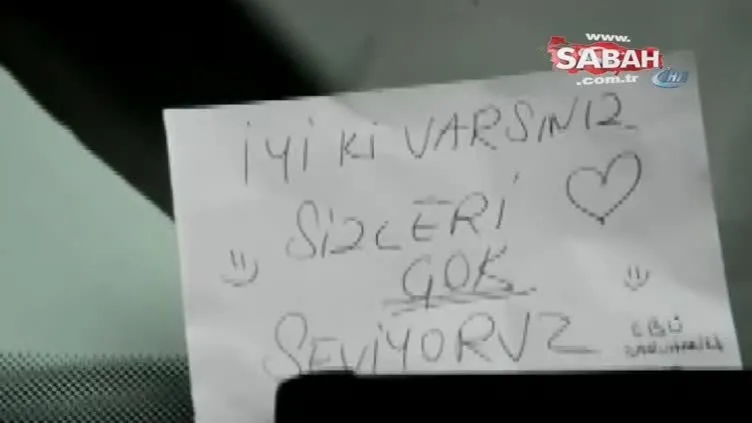 www.
SABAH
.com.tr
İYİ Kİ VARSINIZ
SİZLERİ
ÇOK
SEVİYORUZ
EBÜ